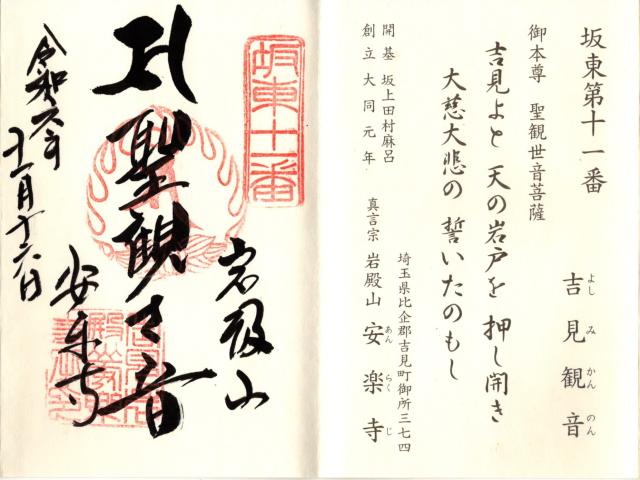 坂東第十一番
吉見観音
よしみかんのん
御本尊 聖観世音菩薩
吉見よと 天の岩戸を 押し開き
大慈大悲の 誓いたのもし
開基 坂上田村麻呂
創立 大同元年
埼玉県比企郡吉見町御所三七四
真言宗 岩殿山 安楽寺
あんらくじ
坂東十一番
岩殿山
聖観世音
安楽寺
令和六年
十一月十六日